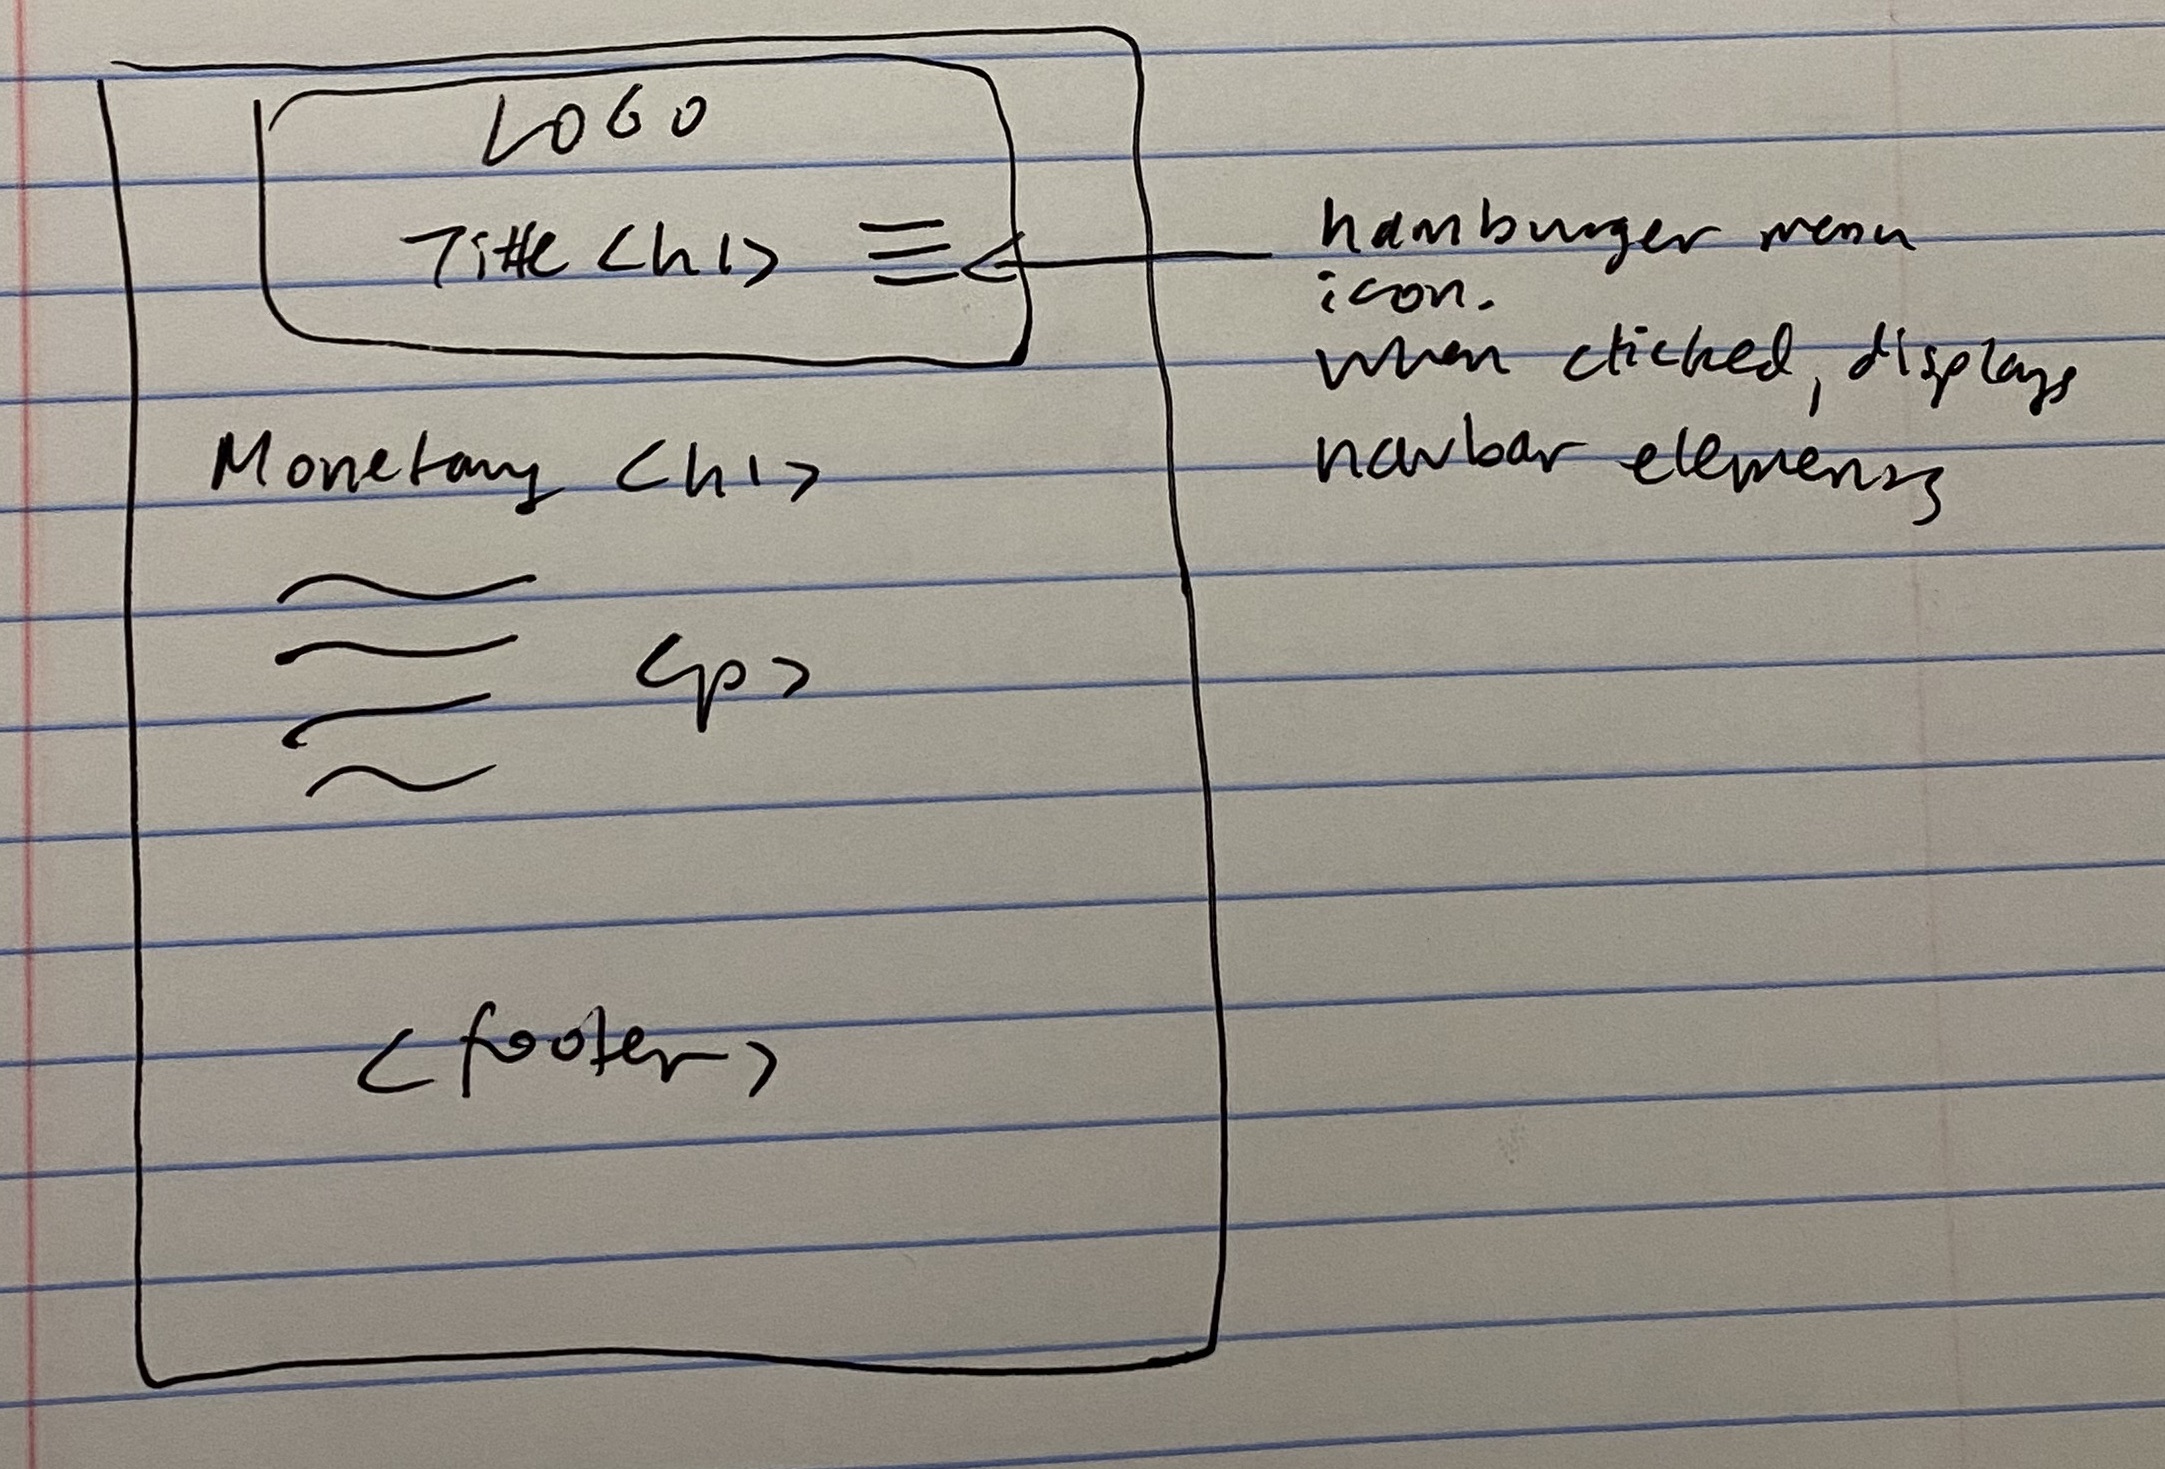 LOGO
Title <h1>
hamburger menu
icon.
when clicked, displays
navbar elements
Monetary <h1>
<p>
<footer>